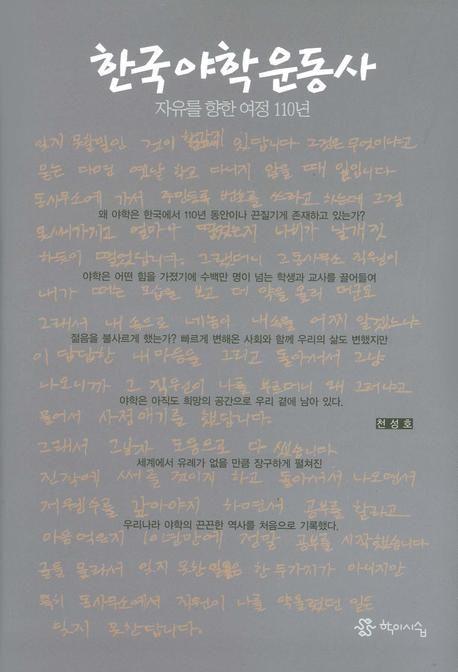 한국야학운동사
자유를 향한 여정 110년
잊지 못할일인 것이 한가지 있답니다 그것은 무엇이냐고
묻는 다면 옛날 학교 다니지 않을 때 일입니다
동사무소에 가서 주민등록 번호를 쓰라고 하는데 그걸
왜 야학은 한국에서 110년 동안이나 끈질기게 존재하고 있는가?
얼마나 떨렸든지 나비가 날개짓
하듯이 떨렸답니다. 그랬더니 그동사무소 직원이
야학은 어떤 힘을 가졌기에 수백만 명이 넘는 학생과 교사를 끌어들여
내가 떠는 모습을 보고 더 약을 올려
그래서 내 손으로 네놈이 내속을 어찌 알겠느냐
젊음을 불사르게 했는가? 빠르게 변해온 사회와 함께 우리의 삶도 변했지만
이 답답한 내마음을 그리고 돌아서서 그냥
나오니까 그 직원이 나를 부르더니 왜 그러냐고
야학은 아직도 희망의 공간으로 우리 곁에 남아 있다.
물어서 사정얘기를 했답니다.
천성호
그래서 그남자 도움으로 다 썼습니다
세계에서 유례가 없을 만큼 장구하게 펼쳐진
진작에 써 줄 것이지 하고 돌아서서 나오면서
갚아야지 하면서 공부를 할라고
우리나라 야학의 끈끈한 역사를 처음으로 기록했다.
마음먹은지 10년만에 정말 공부를 시작했습니다
글을 몰라서 잊지 못한 일들은 한두가지가 아니지만
특히 동사무소에서 직원이 나를 약올렸던 일은
잊지 못한답니다.
학이시습